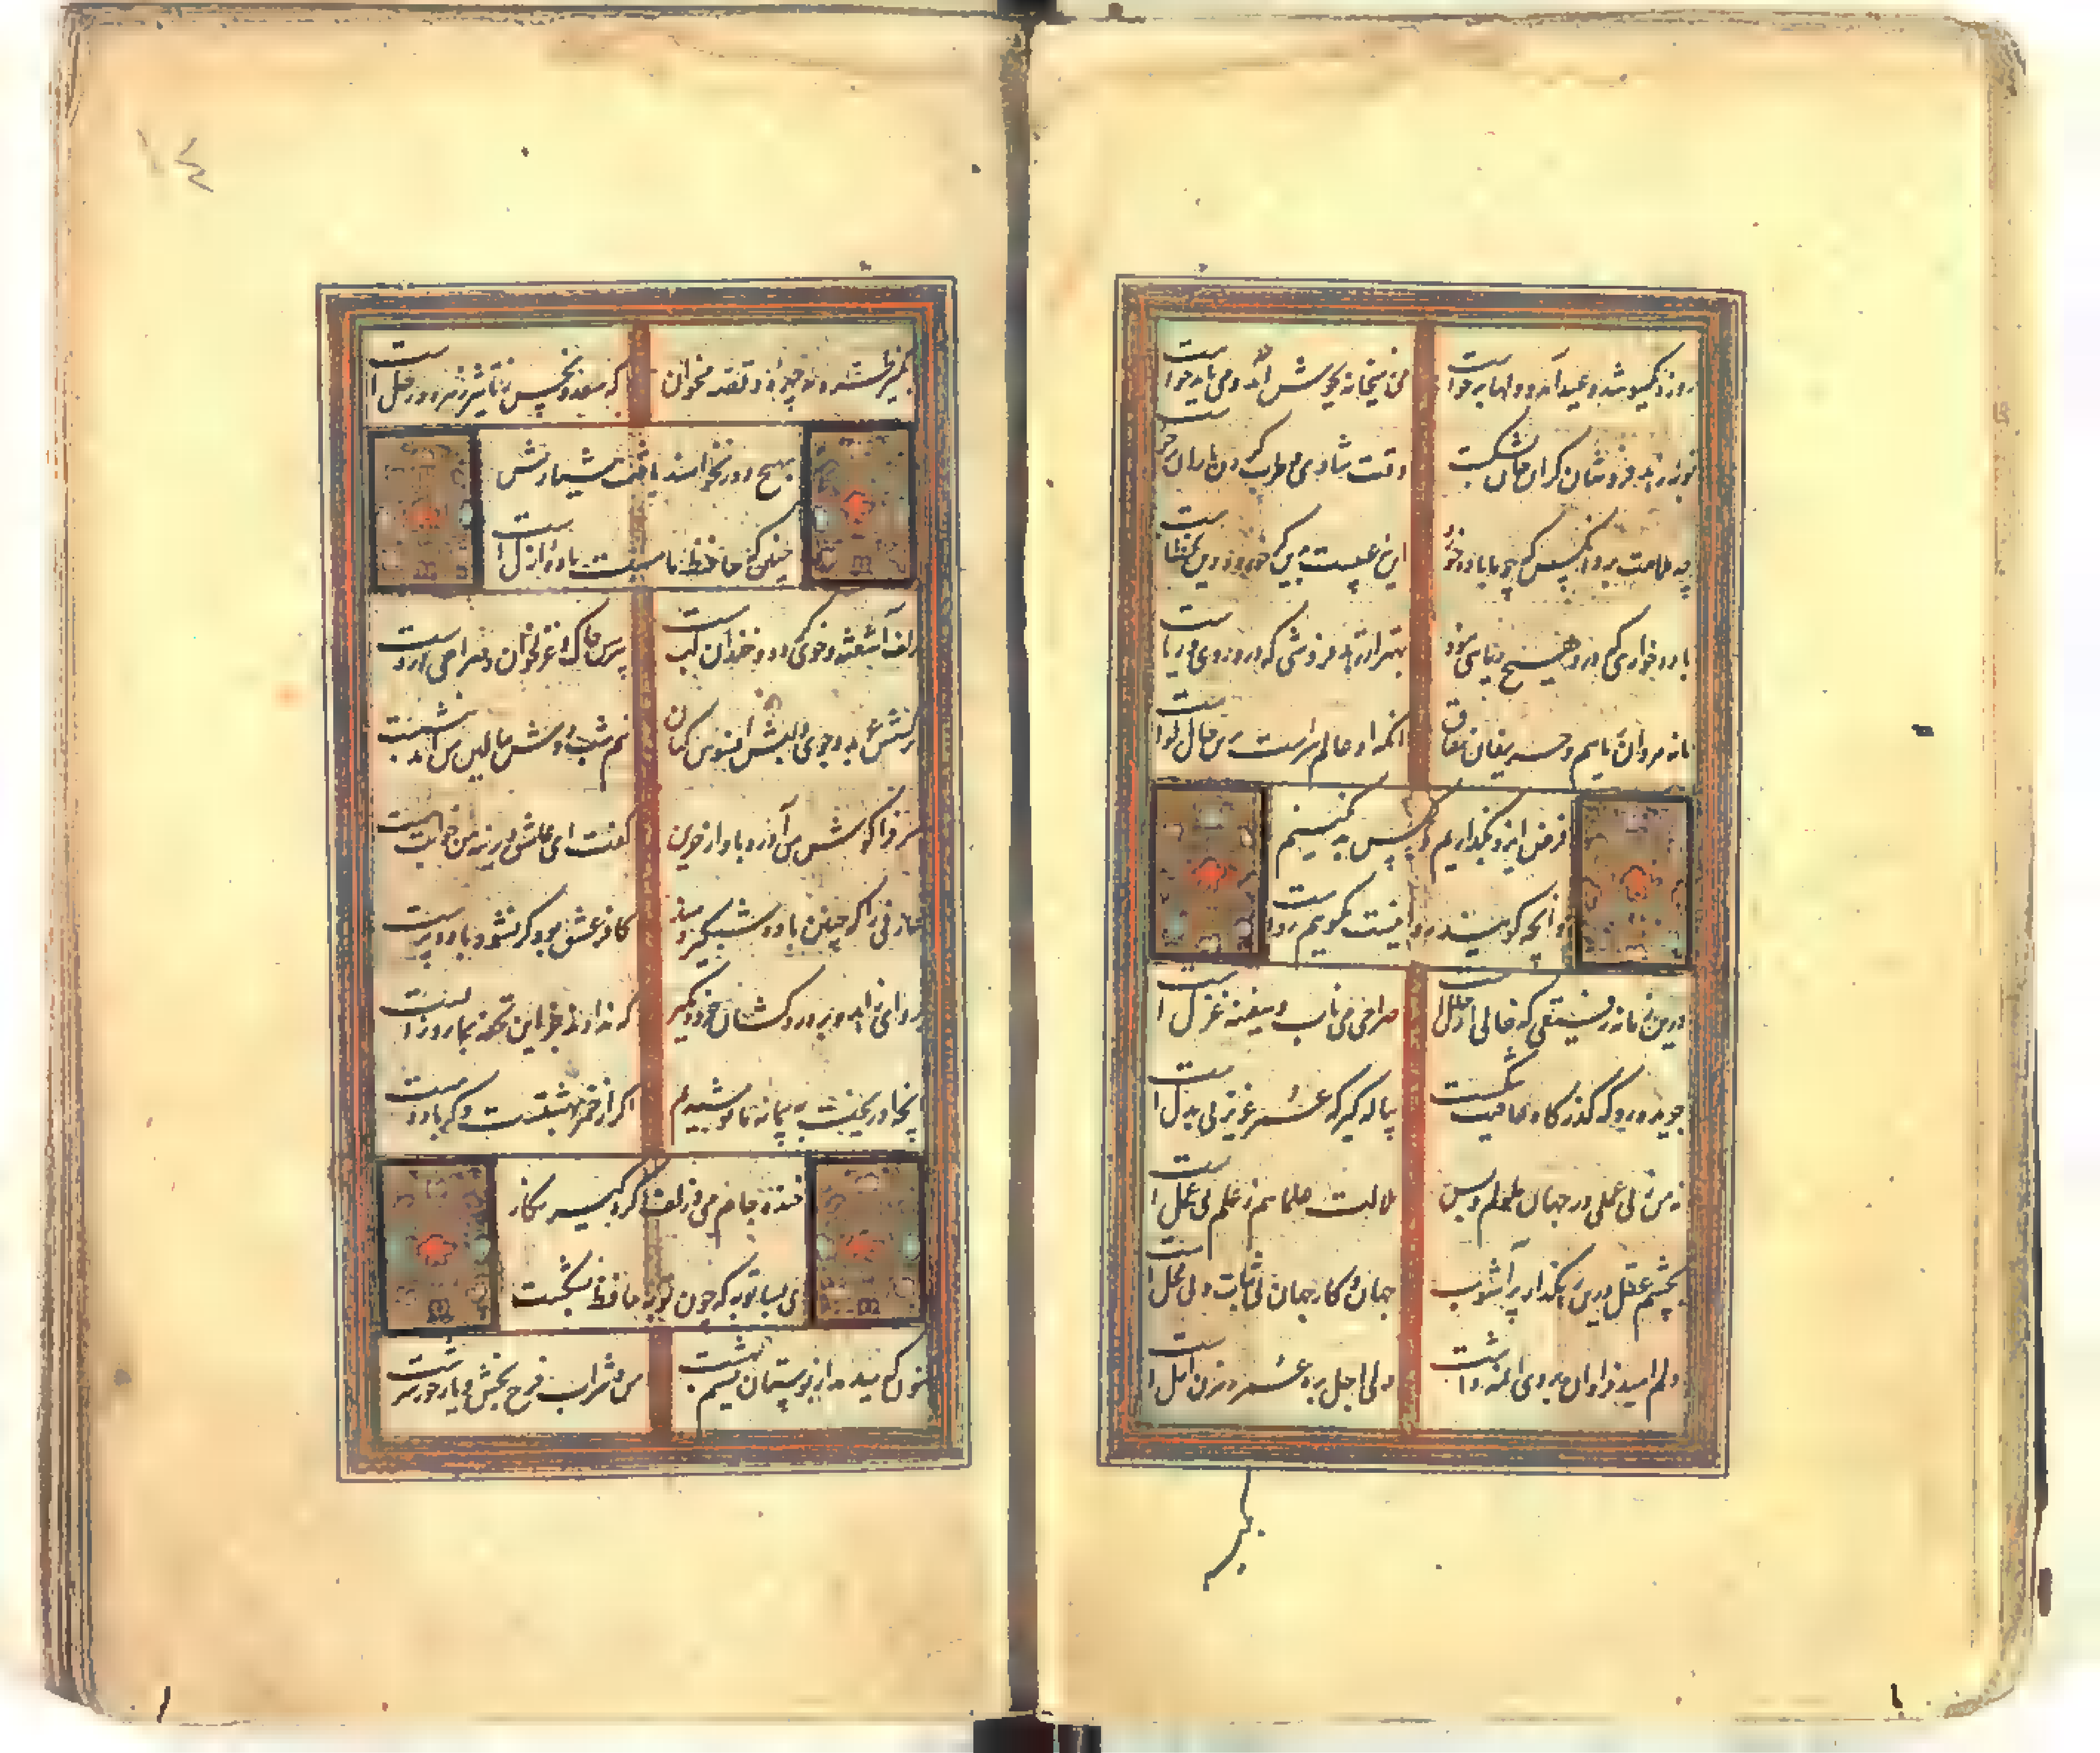 روزه یکسو شد و عید آمد و دلها برخواست
می ز میخانه بجوش آمد و می باید خواست
نوبه زهد فروشان گران جان بگذشت
وقت شادی و طرب کردن یاران
چه ملامت بود آنکس که چو ما باده خورد
این نه عیبست بر کین خطاست
باده خواری که درو هیچ ریایی نبود
بهتر از زهد فروشی که درو روی و ریاست
ما نه مردان ریاییم و حریفان نفاق
آنکه او عالم سراست برین حال گواست
فرض ایزد بگذاریم و بکس بد نکنیم
و آنچه گویند روا نیست گوییم رواست
درین زمانه رفیقی که خالی از خللست
صراحی می ناب و سفینه غزلست
جریده رو که گذرگاه عافیت تنگست
پیاله گیر که عمر عزیز بی بدلست
نه من ز بی عملی در جهان ملولم و بس
ملالت علما هم ز علم بی عملست
بچشم عقل درین رهگذار پر آشوب
جهان و کار جهان بی ثبات و بی محلست
دلم امید فراوان بروی داشت
ولی اجل بره عمر رهزن املست
بگیر
بگیر طره و قصه مخوان
که سعد و نحس ز تاثیر زهره و زحلست
بهیچ دور نخواهند یافت هشیارش
چنین که حافظ ما مست باده ازلست
زلف آشفته و خوی کرده و خندان لب مست
پیرهن چاک و غزلخوان و صراحی در دست
نرگسش عربده جوی و لبش افسوس کنان
نیم شب دوش ببالین من آمد بنشست
سر فرا گوش من آورد باواز حزین
گفت ای عاشق دیرینه من خوابت هست
عارفی را که چنین باده شبگیر دهند
کافر عشق بود گر نشود باده پرست
برو ای زاهد و بر دردکشان خرده مگیر
که ندادند جز این تحفه بما روز الست
آنچه او ریخت به پیمانه ما نوشیدیم
اگر از خمر بهشتست و گر باده مست
خنده جام می و زلف گره گیر نگار
ای بسا توبه که چون توبه حافظ بشکست
کنون که میدمد از بوستان نسیم بهشت
من و شراب فرح بخش و یار حور سرشت